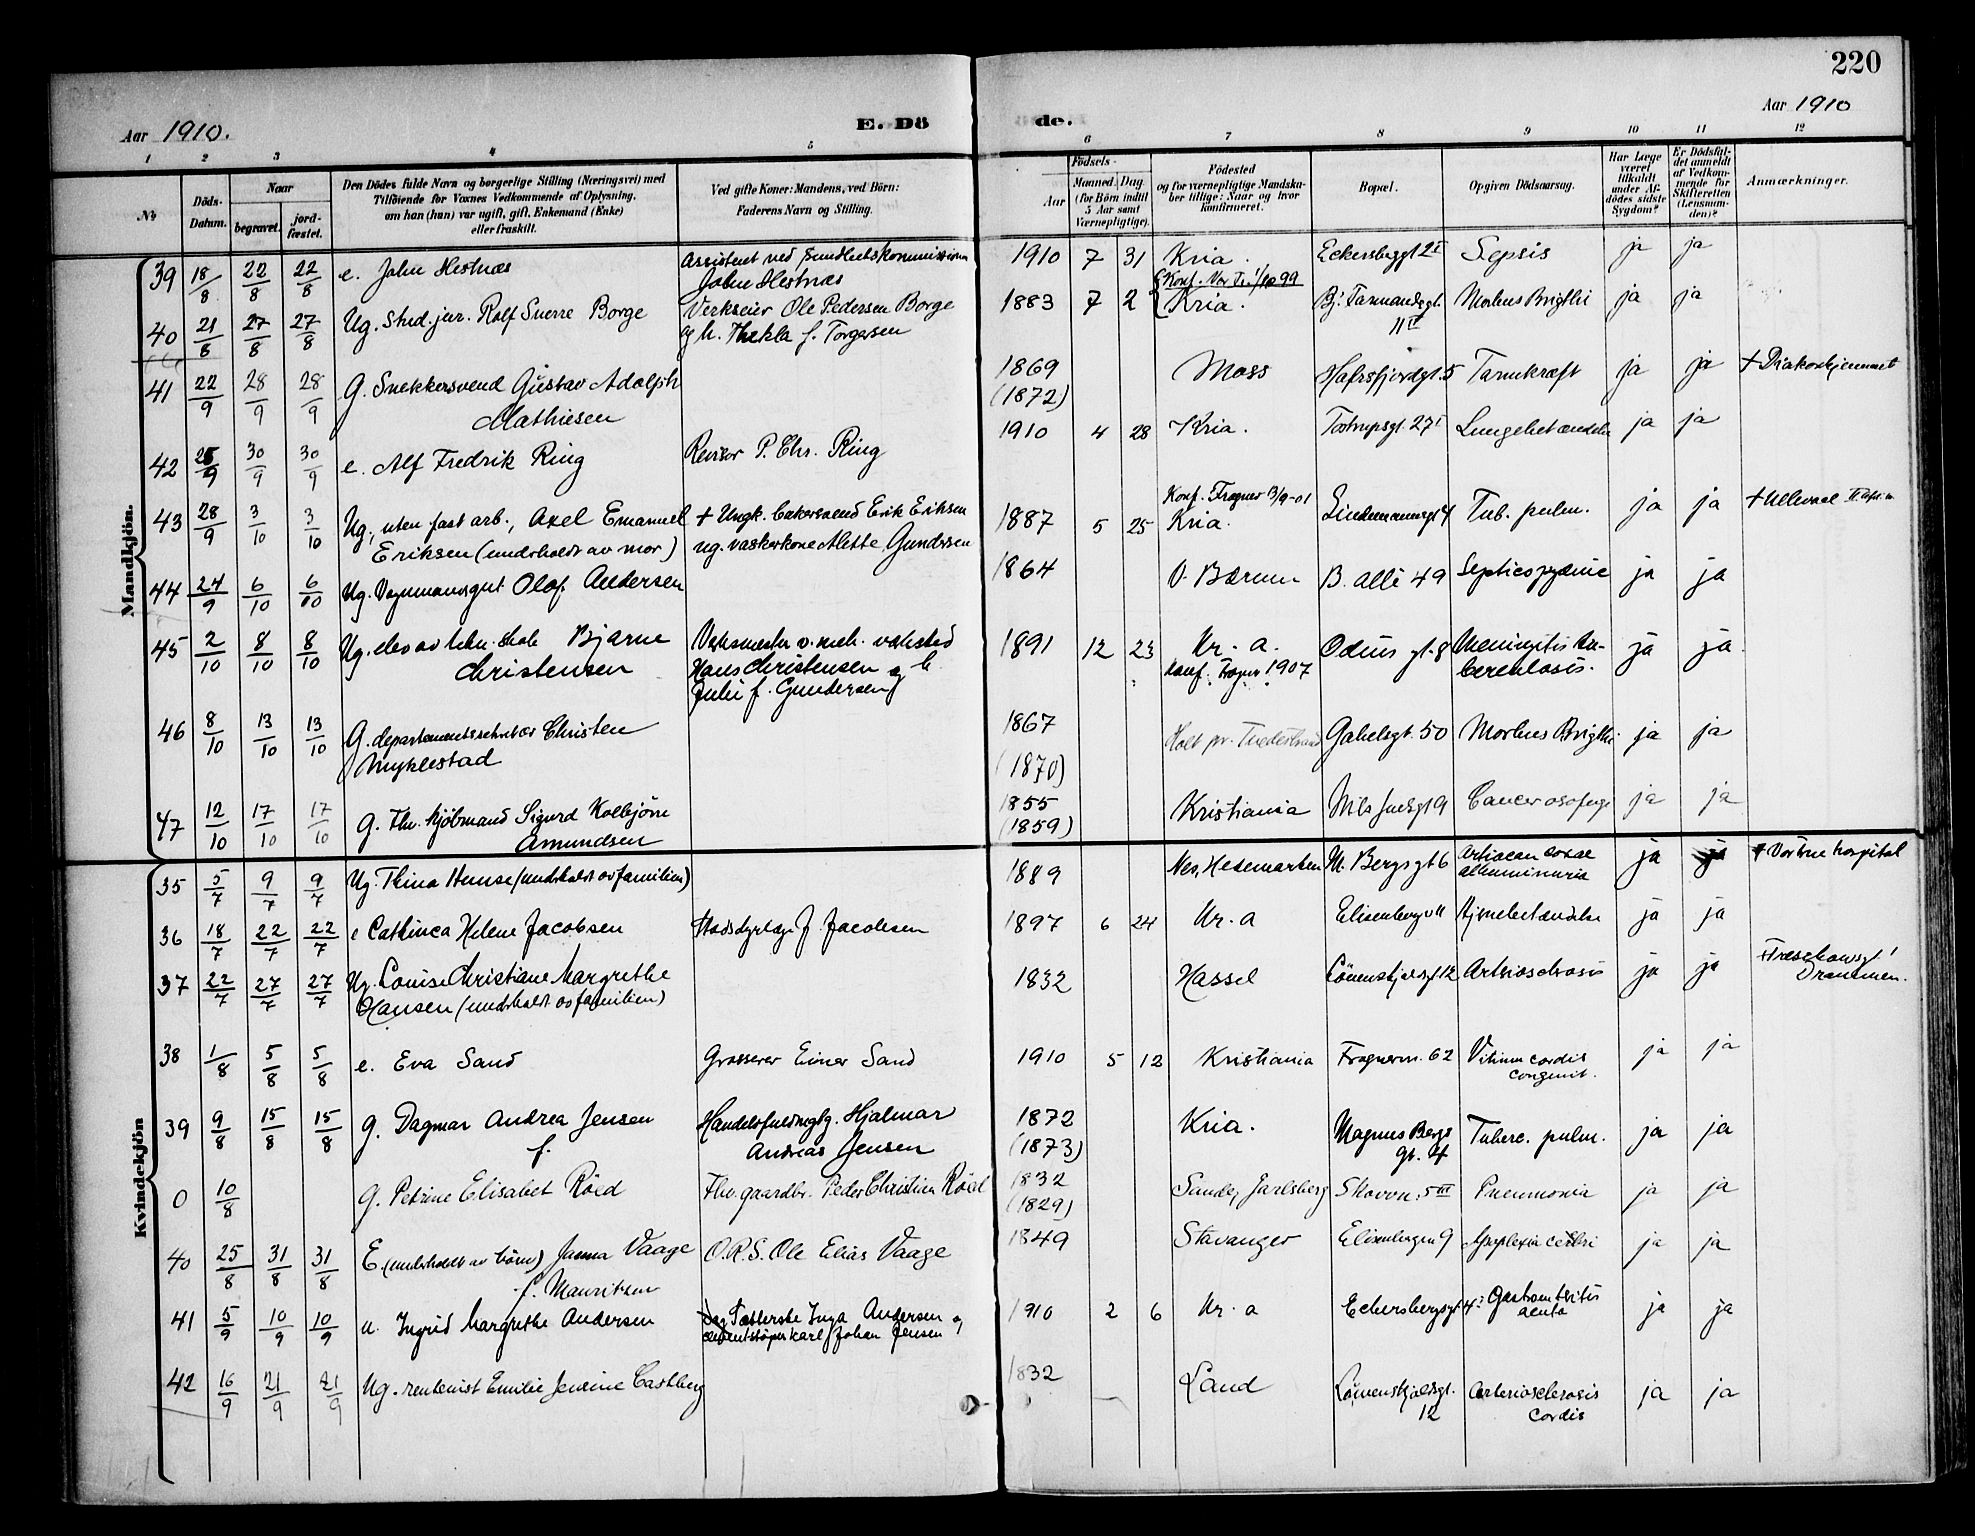 220
Aar 1910.
E. Dö
de.
Aar 1910
1 2 3 4 5 6 7 8 9 10 11 12
No
Döds-Datum.
Naar
begravet.
jord-fæstet.
Den Dödes fulde Navn og borgerlige Stilling (Næringsvei) med
Tilföiende for Voxnes Vedkommende af Oplysning,
om han (hun) var ugift, gift, Enkemand (Enke)
eller fraskilt.
Ved gifte Koner: Mandens, ved Börn:
Faderens Navn og Stilling.
Födsels-
Aar
Maaned. Dag
(for Börn indtil
5 Aar samt
Værnepligtige).
Födested
og for værnepligtige Mandska-
ber tillige: Naar og hvor
konfirmeret.
Bopæl.
Opgiven Dödsaarsag.
Har Læge
været
tilkaldt
under Af-
dödes sidste
Sygdom?
Er Dödsfal-
det anmeldt
af Vedkom-
mende for
Skifteretten
(Lensman-
den)?
Anmærkninger.
Mandkjön.
39 18/8 22/8 22/8 e. John Hestnæs Assistent ved sundhetskommissionen John Hestnæs 1910 7 31 Kria. Eckersbggt 2 I Sepsis ja ja
40 21/8 27/8 27/8 Ug. Stud. jur. Rolf Snerre Borge Verkseier Ole Pedersen Borge
og h. Thekla f. Torgersen 1883 7 2 Konf. Vor Fr. 1/10 99 Kria. Bj. Farmandsgt. 11 Morbus Brigthi ja ja
41 22/9 28/9 28/9 G. Snekkersvend Gustav Adolph
Mathiesen 1869 (1872) Moss Hafrsfjordgt. 5 Tarmkræft ja ja + Diakonhjemmet
42 25/9 30/9 30/9 e. Alf Fredrik Ring Revisor P. Chr. Ring 1910 4 28 Kria. Tostrupsgt. 27 I Lungebetændelse ja ja
43 28/9 3/10 3/10 Ug., uten fast arb., Axel Emanuel
Eriksen (underholdt av mor) + Ungk. bakersvend Erik Eriksen
ug. vaskerkone Alette Gundersen 1887 5 25 Konf. Frogner 13/9-01 Kria. Lindemannsgt 4 Tub. pulm. ja ja + Ullevaal
44 24/9 6/10 6/10 Ug. Vognmansgut Olof Andersen 1864 V. Bærum B. allé 49 Septicopyæmie ja ja
45 2/10 8/10 8/10 Ug. elev av tekn. skole Bjarne
Christensen Verksmester v. mek. verksted
Hans Christensen og h.
Julie f. Gundersen 1891 12 23 Kr. a.
konf. Frogner 1907 Odins gt. 8 Meningitis tu-
berculosis. ja ja
46 8/10 13/10 13/10 G. departementssekretær Christen
Myklestad 1867 (1870) Holt pr. Tvedestrand Gabelsgt. 50 Morbus Brigthi ja ja
47 12/10 17/10 17/10 G. Fhv. kjöbmand Sigurd Kolbjörn
Amundsen 1855 (1859) Kristiania Nils Juelsgt 9 Cancer osofagi ja ja
Kvindekjön
35 5/7 9/7 9/7 Ug. Thina Hemse (underholdt av familien) 1889 Nes, Hedemarken M. Bergsgt 6
albuminuria ja ja + Vor Frue hospital
36 18/7 22/7 22/7 e Cathinca Helene Jacobsen Stadsdyrlæge J. Jacobsen 1897 6 24 Kr. a Elisenbergv 11 Hjernebetændelse ja ja
37 22/7 27/7 27/7 Ug. Louise Christiane Margrethe
Hansen (underholdt av familien) 1832 Hassel Lövenskjoldsgt 12 Arteriosclerosis ja ja
Drammen.
38 1/8 5/8 5/8 e. Eva Sand Grosserer Einer Sand 1910 5 12 Kristiania Frognerv. 62 Vitium cordis
congenit. ja ja
39 9/8 15/8 15/8 g. Dagmar Andrea Jensen
f. Handelsfuldmegtg. Hjalmar
Andreas Jensen 1872 (1873) Kria. Magnus Bergs
gt. 4 Tuberc. pulm. ja ja
0 10/8 G. Petrine Elisabet Röed Fhv. gaardbr. Peder Christian Röed 1832 (1829) Sande, Jarlsberg Skovv. 5 III Pneumonia ja ja
40 25/8 31/8 31/8 E. (underholdt av börn) Janna Vaage
f. Mauritzen O.R.S. Ole Elias Vaage 1849 Stavanger Elisenbergvn 9 Apoplexia cerebri ja ja
41 5/9 10/9 10/9 u. Ingrid Margrethe Andersen Inga Andersen og
cementstöper Karl Johan Jensen 1910 2 6 Kr. a Eckersbergsgt 4 Gastroenteritis
acuta ja ja
42 16/9 21/9 21/9 Ug. rentenist Emilie Jenine Castberg 1832 Land Lövenskjoldsgt.
12 Arteriosclerosis
cordis ja ja